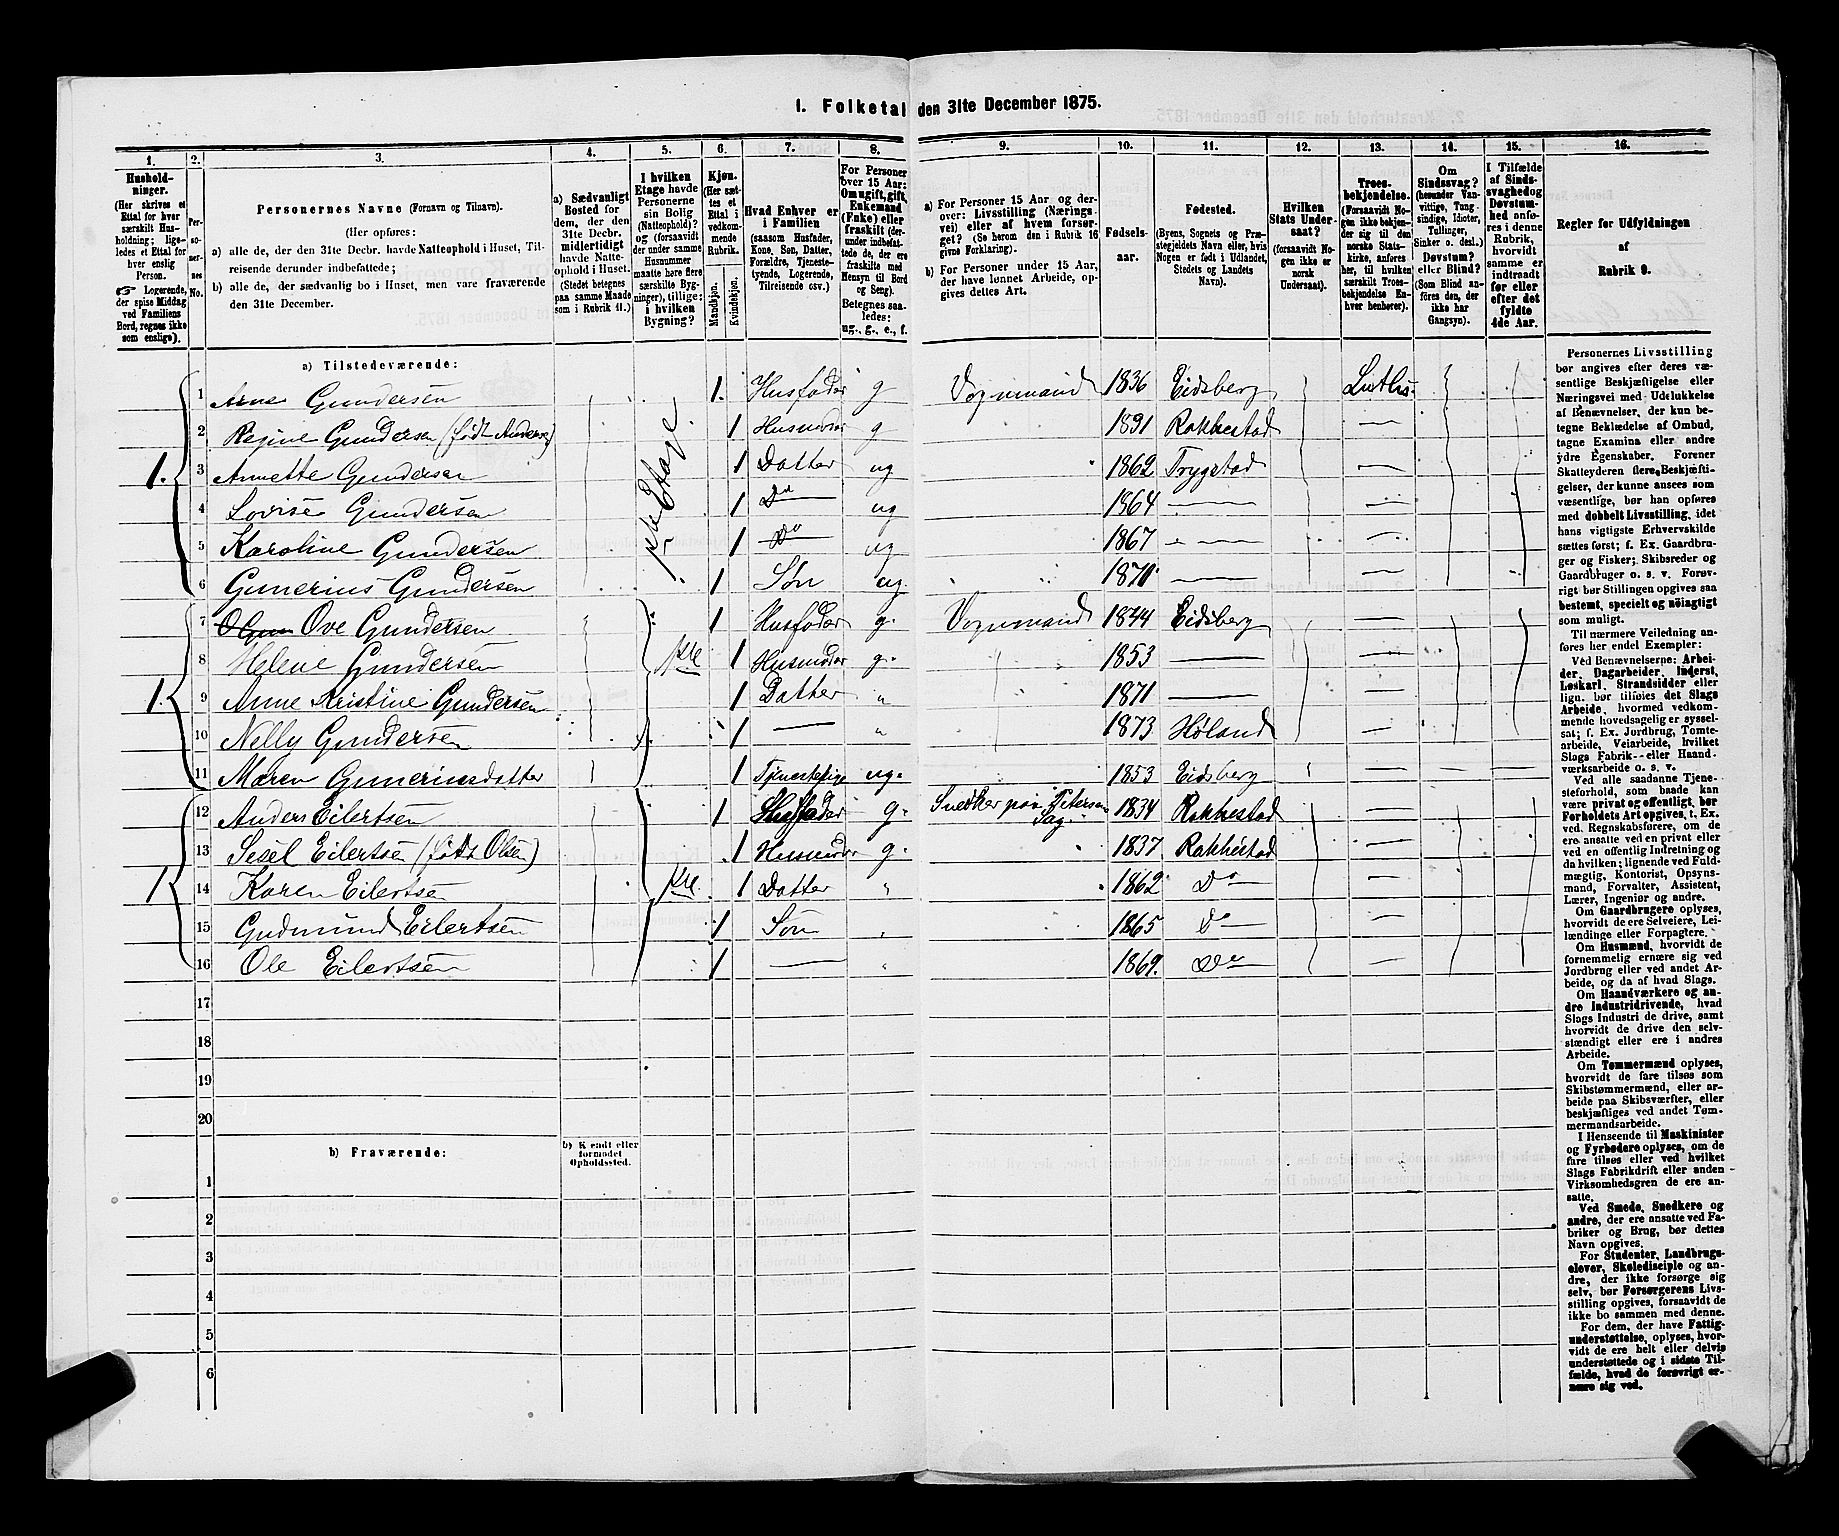 1. Folketal den 31te December 1875.
1. 2. 3. 4. 5. 6. 7. 8. 9. 10. 11. 12. 13. 14. 15. 16.
Hushold-
ninger.
(Her skrives et
Ettal for hver
særskilt Hus-
holdning; lige-
ledes et Ettal for
hver enslig
Person.
Logerende,
der spise Middag
ved Familiens
Bord, regnes ikke
som enslige).
Per-
so-
ner-
nes
No.
Personernes Navne (Fornavn og Tilnavn).
(Her opføres:
a) alle de, der den 31te Decbr. havde Natteophold i Huset, Til-
reisende derunder indbefattede;
b) alle de, der sædvanlig bo i Huset, men vare fraværende
den 31te December.
a) Sædvanligt
Bosted for
dem, der den
31te Decbr.
midlertidigt
havde Natte-
ophold i Huset.
(Stedet betegnes
paa samme Maade
som i Rubrik 11.)
I hvilken
Etage havde
Personerne
sin Bolig
(Natteophold)?
og (forsaavidt
der under samme
Husnummer
maatte høre flere
særskilte Byg-
ninger), tillige:
i hvilken
Bygning?
Kjøn.
(Her sæt-
tes et
Ettal i
vedkom-
mende
Rubrik.
Mandkjøn.
Kvindekjøn.
Hvad Enhver er
i Familien
(saasom Husfader,
Kone, Søn, Datter,
Forældre, Tjeneste-
tyende, Logerende,
Tilreisende osv.)
For Personer
over 15 Aar:
Om ugift, gift,
Enkemand
(Enke) eller
fraskilt (der-
under indbefat-
tede de, der ere
fraskilte med
Hensyn til Bord
og Seng).
Betegnes saa-
ledes:
ug., g., e., f.
a) For Personer 15 Aar og der-
over: Livsstilling (Nærings-
vei) eller af hvem forsør-
get? (Se herom den i Rubrik 16
givne Forklaring).
b) For Personer under 15 Aar,
der have lønnet Arbeide, op-
gives dettes Art.
Fødsels-
aar.
Fødested.
(Byens, Sognets og Præ-
stegjeldets Navn eller, hvis
Nogen er født i Udlandet,
Stedets og Landets
Navn).
Hvilken
Stats Under-
saat?
(forsaavidt No-
gen ikke er
norsk
Undersaat).
Troes-
bekjendelse.
(Forsaavidt No-
gen ikke bekjen-
der sig til den
norske Stats-
kirke, anføres
her, til hvilken
særskilt Troes-
bekjendelse En-
hver henhører).
Om
Sindssvag?
(herunder Van-
vittige, Tung-
sindige, Idioter,
Tullinger,
Sinker o. desl.)
Døvstum?
eller Blind?
(Som Blind an-
føres den, der
ikke har
Gangsyn).
I Tilfælde
af Sinds-
svaghed og
Døvstum-
hed anfø-
res i denne
Rubrik,
hvorvidt
samme er
indtraadt
før eller
efter det
fyldte
4de Aar.
Regler for Udfyldningen
af
Rubrik 9.
a) Tilstedeværende:
1. 1ste Etage.
1 Arne Gundersen 1. Husfader g Vognmand 1836 Eidsberg Luths
2 Regine Gundersen (født Anders) 1 Husmoder g 1831 Rakkestad —
3 Annette Gundersen 1 Datter ug 1862 Trygstad —
4 Lovise Gundersen 1 Do ug 1864 — —
5 Karoline Gundersen 1 Do ug 1867 — —
6 Gunerius Gundersen 1 Søn ug. 1870 — —
1. 1ste
7 Ove Gundersen 1 Husfader g. Vognmand 1844 Eidsberg —
8 Helene Gundersen 1 Husmoder g. 1853 — —
9 Anne Kristine Gundersen 1 Datter " 1871 — —
10 Nelly Gundersen 1 — " 1873 Høland —
11 Maren Gunerinsdatter 1 Tjenestepige ug. 1853 Eidsberg — — —
1 1ste
12 Anders Eilertsen 1 Husfader g. Snedker paa Petersens Sag. 1834 Rakkestad —
13 Sesel Eilertsen (født Olsen) 1 Husmoder g. 1837 Rakkestad —
14 Karen Eilertsen 1 Datter " 1862 Do —
15 Gudmund Eilertsen 1 Søn " 1865 Do —
16 Ole Eilertsen 1 — " 1869. Do —
17
18
19
20
b) Fraværende:
b) Kjendt eller
formodet
Opholdssted.
1
2
3
4
5
6
Personernes Livsstilling
bør angives efter deres væ-
sentlige Beskjæftigelse eller
Næringsvei med Udelukkelse
af Benævnelser, der kun be-
tegne Beklædelse af Ombud,
tagne Examina eller andre
ydre Egenskaber. Forener
Skatteyderen flere Beskjæfti-
gelser, der kunne ansees som
væsentlige, bør han opføres
med dobbelt Livsstilling, idet
hans vigtigste Erhvervskilde
sættes først; f. Ex. Gaardbru-
ger og Fisker; Skibsreder og
Gaardbruger o. s. v. Forøv-
rigt bør Stillingen opgives saa
bestemt, specielt og nøiagtigt
som muligt.
Til nærmere Veiledning an-
føres her endel Exempler:
Ved Benævnelserne: Arbei-
der, Dagarbeider, Inderst,
Løskarl, Strandsidder eller
lign. bør tilføies det Slags
Arbeide, hvormed vedkom-
mende hovedsagelig er syssel-
sat; f. Ex. Jordbrug, Tomte-
arbeide, Veiarbeide, hvilket
Slags Fabrik- eller Haand-
værksarbeide o. s. v.
Ved alle saadanne Tjene-
steforhold, som baade kan
være privat og offentligt, bør
Forholdets Art opgives, t. Ex.
ved Regnskabsførere, om de
ere ansatte ved en privat eller
en offentlig Indretning og
da hvilken; lignende ved Fuld-
mægtig, Kontorist, Opsyns-
mand, Forvalter, Assistent,
Lærer, Ingeniør og andre.
Om Gaardbrugere oplyses,
hvorvidt de ere Selveiere, Lei-
lændinge eller Forpagtere.
Om Husmænd, hvorvidt de
fornemmelig ernære sig ved
Jordbrug eller ved andet Ar-
beide, og da af hvad Slags.
Om Haandværkere og an-
dre Industridrivende, hvad
Slags Industri de drive, samt
hvorvidt de drive den selv-
stændigt eller ere i andres
Arbeide.
Om Tømmermænd oplyses,
hvorvidt de fare tilsøs som
Skibstømmermænd, eller ar-
beide paa Skibsværfter, eller
beskjæftiges ved andet Tøm-
mermandsarbeide.
I Henseende til Maskinister
og Fyrbødere oplyses, om de
fare tilsøs eller ved hvilket
Slags Fabrikdrift eller anden
Virksomhedsgren de ere an-
satte.
Ved Smede, Snedkere og
andre, der ere ansatte ved Fa-
briker og Brug, bør dettes
Navn opgives.
For Studenter, Landbrugs-
elever, Skoledisciple og an-
dre, der ikke forsørge sig
selv, bør Forsørgerens Livs-
stilling opgives, forsaavidt de
ikke bo sammen med denne.
For dem, der have Fattig-
understøttelse, oplyses, hvor-
vidt de ere helt eller delvis
understøttede og i sidste Til-
fælde, hvad de forøvrigt er-
nære sig ved.